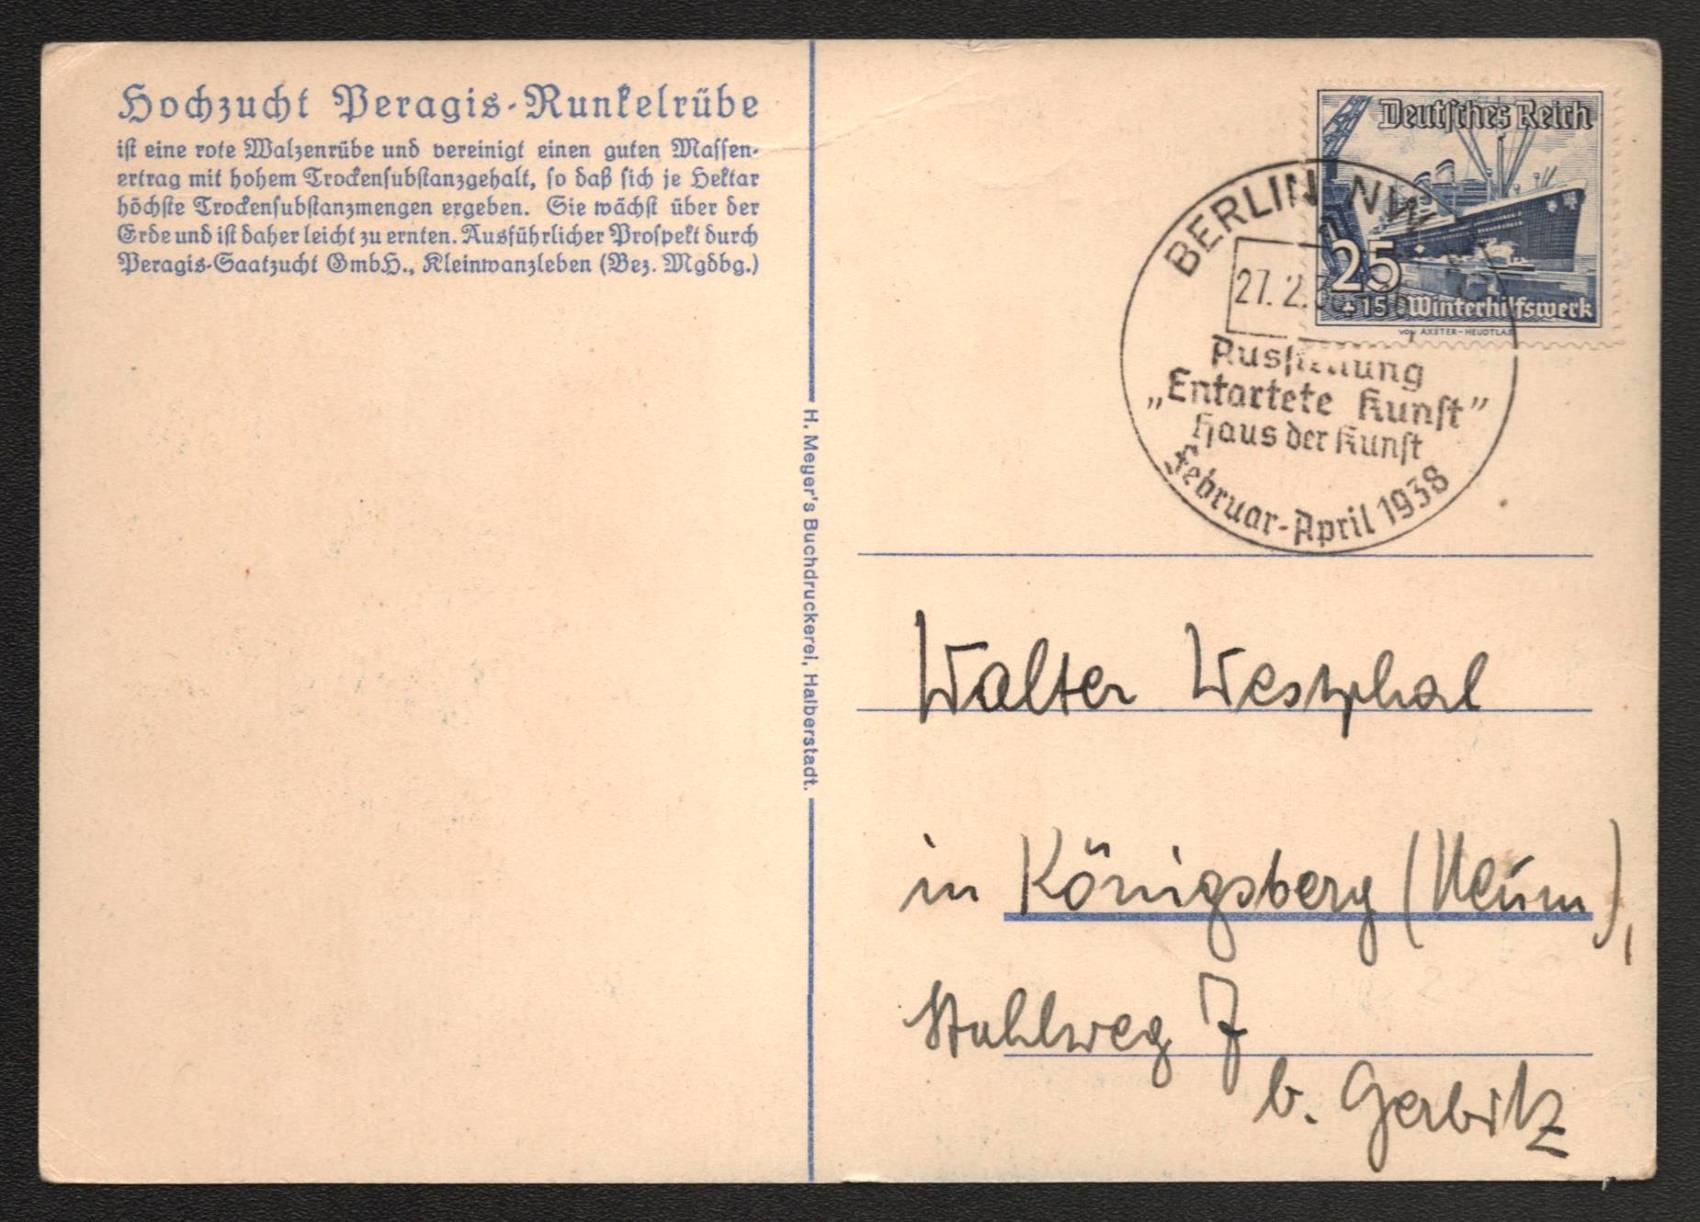 Hochzucht Peragis-Runkelrübe
ist eine rote Walzenrübe und vereinigt einen guten Massen-
ertrag mit hohem Trockensubstanzgehalt, so daß sich je Hektar
höchste Trockensubstanzmengen ergeben. Sie wächst über der
Erde und ist daher leicht zu ernten. Ausführlicher Prospekt durch
Peragis-Saatzucht GmbH., Kleinwanzleben (Bez. Mgdbg.)
H. Meyer's Buchdruckerei, Halberstadt.
Deutsches Reich
25
+15 Winterhilfswerk
VON AXSTER-HEUDTLAß
BERLIN NW
27. 2.
Ausstellung
„Entartete Kunst"
Haus der Kunst
Februar-April 1938
Walter Westphal
in Königsberg (Neum),
7
b. Gerbitz